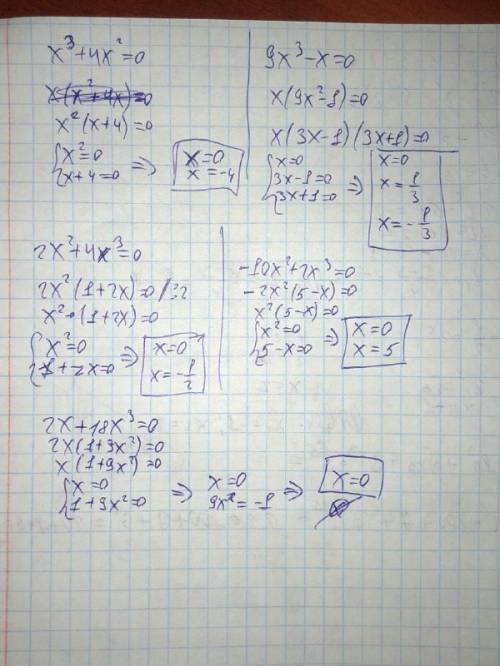 x³+4x²=0
x(x²+4x)=0
x²(x+4)=0
{x²=0
x+4=0 => x=0
x=-4
9x³-x=0
x(9x²-1)=0
x(3x-1)(3x+1)=0
{x=0
3x-1=0
3x+1=0 => x=0
x=1/3
x=-1/3
2x²+4x³=0
2x²(1+2x)=0 /:2
x²·(1+2x)=0
{x²=0
1+2x=0 => x=0
x=-1/2
-10x²+2x³=0
-2x²(5-x)=0
x²(5-x)=0
{x²=0
5-x=0 => x=0
x=5
2x+18x³=0
2x(1+9x²)=0
x(1+9x²)=0
{x=0
1+9x²=0 => x=0
9x²=-1 => x=0